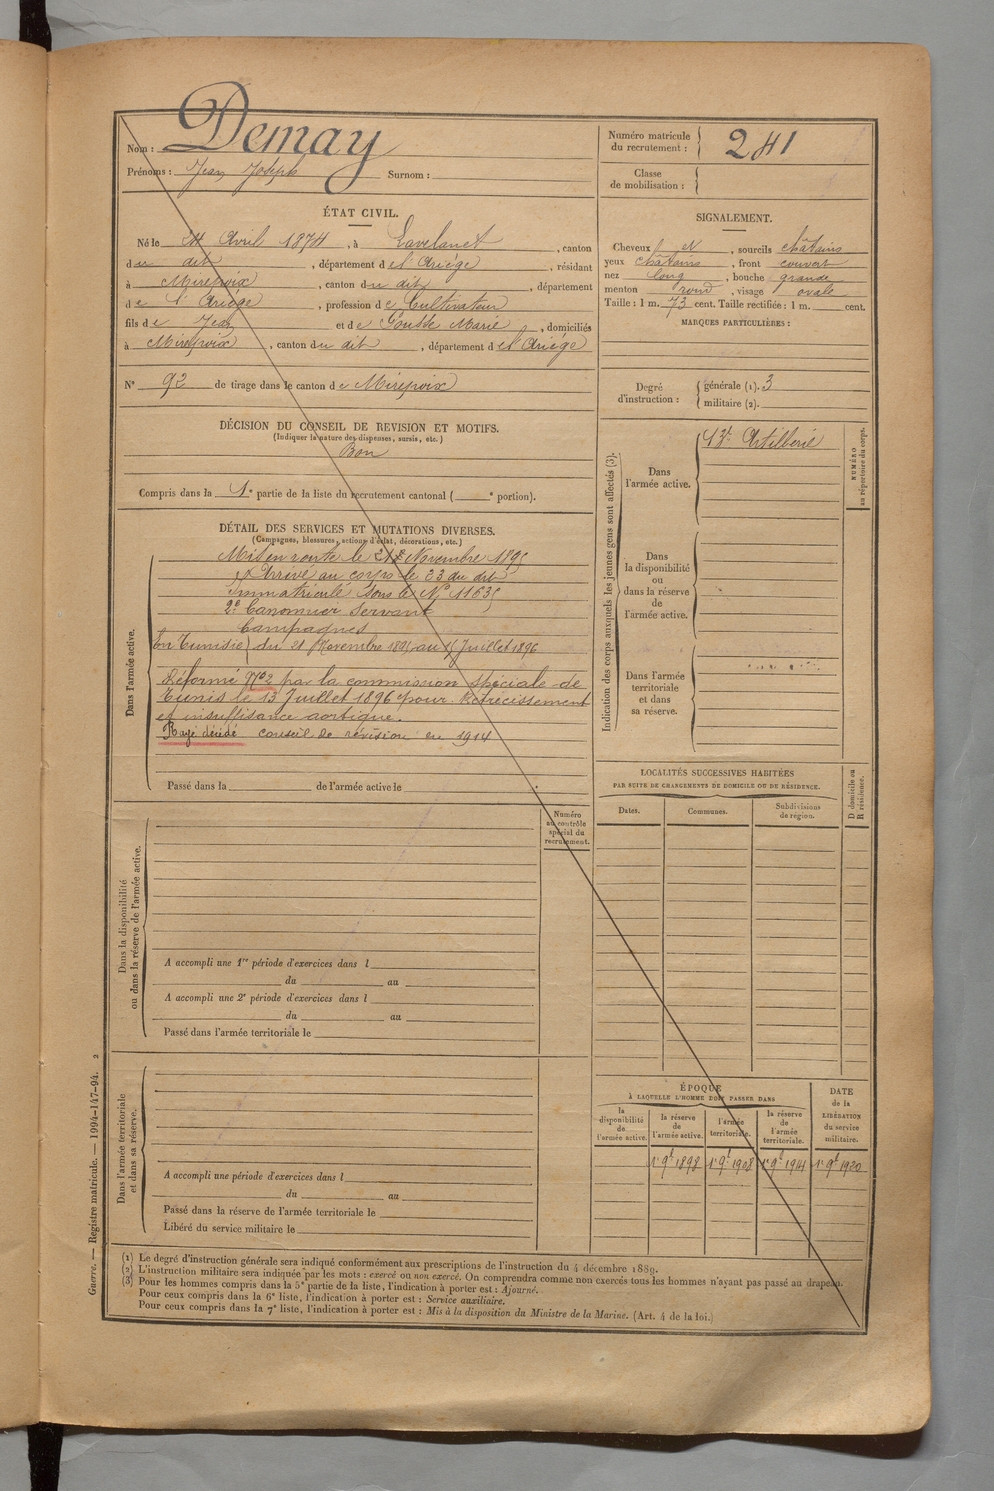 Nom : Demay
Prénoms : Jean Joseph Surnom :
Numéro matricule du recrutement : 241
Classe de mobilisation :
ÉTAT CIVIL.
Né le Avril 1874, à Lavelanet, canton
du dit, département de l'Ariège, résidant
à Mirepoix, canton du dit, département
de l'Ariège, profession de Cultivateur
fils de Jean et de Gousse Marie, domiciliés
à Mirepoix, canton du dit, département de l'Ariège
N° 92 de tirage dans le canton de Mirepoix
SIGNALEMENT.
Cheveux et N, sourcils châtains
yeux châtains, front couvert
nez long, bouche grande
menton rond, visage ovale
Taille : 1 m. 73 cent. Taille rectifiée : 1 m. cent.
MARQUES PARTICULIÈRES :
Degré d'instruction : générale (1). 3
militaire (2).
DÉCISION DU CONSEIL DE REVISION ET MOTIFS.
(Indiquer la nature des dispenses, sursis, etc.)
Bon
Compris dans la 1e partie de la liste du recrutement cantonal ( e portion).
DÉTAIL DES SERVICES ET MUTATIONS DIVERSES.
(Campagnes, blessures, actions d'éclat, décorations, etc.)
Dans l'armée active.
Mis en route le 21 Novembre 1895
Arrivé au corps le 23 du dit
Immatriculé sous le N° 11635
2e Canonnier Servant
Campagnes
En Tunisie du 21 Novembre 1895 au 15 Juillet 1896
Réformé N°2 par la commission spéciale de
Tunis le 13 Juillet 1896 pour Rétrécissement
et insuffisance aortique.
Rayé décédé conseil de révision en 1914
Passé dans la de l'armée active le
Indication des corps auxquels les jeunes gens sont affectés (3).
Dans l'armée active.
13e Artillerie
NUMÉRO au répertoire du corps.
Dans la disponibilité ou dans la réserve de l'armée active.
Dans l'armée territoriale et dans sa réserve.
LOCALITÉS SUCCESSIVES HABITÉES
PAR SUITE DE CHANGEMENTS DE DOMICILE OU DE RÉSIDENCE.
Dates. Communes. Subdivisions de région. D domicile ou R résidence.
Numéro au contrôle spécial du recrutement.
Dans la disponibilité ou dans la réserve de l'armée active.
A accompli une 1re période d'exercices dans l
du au
A accompli une 2e période d'exercices dans l
du au
Passé dans l'armée territoriale le
Dans l'armée territoriale et dans sa réserve.
A accompli une période d'exercices dans l
du au
Passé dans la réserve de l'armée territoriale le
Libéré du service militaire le
ÉPOQUE
À LAQUELLE L'HOMME DOIT PASSER DANS
la disponibilité de l'armée active. la réserve de l'armée active. l'armée territoriale. la réserve de l'armée territoriale. DATE de la LIBÉRATION du service militaire.
1r 9e 1898 1r 9e 1908 1r 9e 1914 1r 9e 1920
(1) Le degré d'instruction générale sera indiqué conformément aux prescriptions de l'instruction du 4 décembre 1889.
(2) L'instruction militaire sera indiquée par les mots : exercé ou non exercé. On comprendra comme non exercés tous les hommes n'ayant pas passé au drapeau.
(3) Pour les hommes compris dans la 5e partie de la liste, l'indication à porter est : Ajourné.
Pour ceux compris dans la 6e liste, l'indication à porter est : Service auxiliaire.
Pour ceux compris dans la 7e liste, l'indication à porter est : Mis à la disposition du Ministre de la Marine. (Art. 4 de la loi.)
Guerre. — Registre matricule. — 1994-147-94. 2